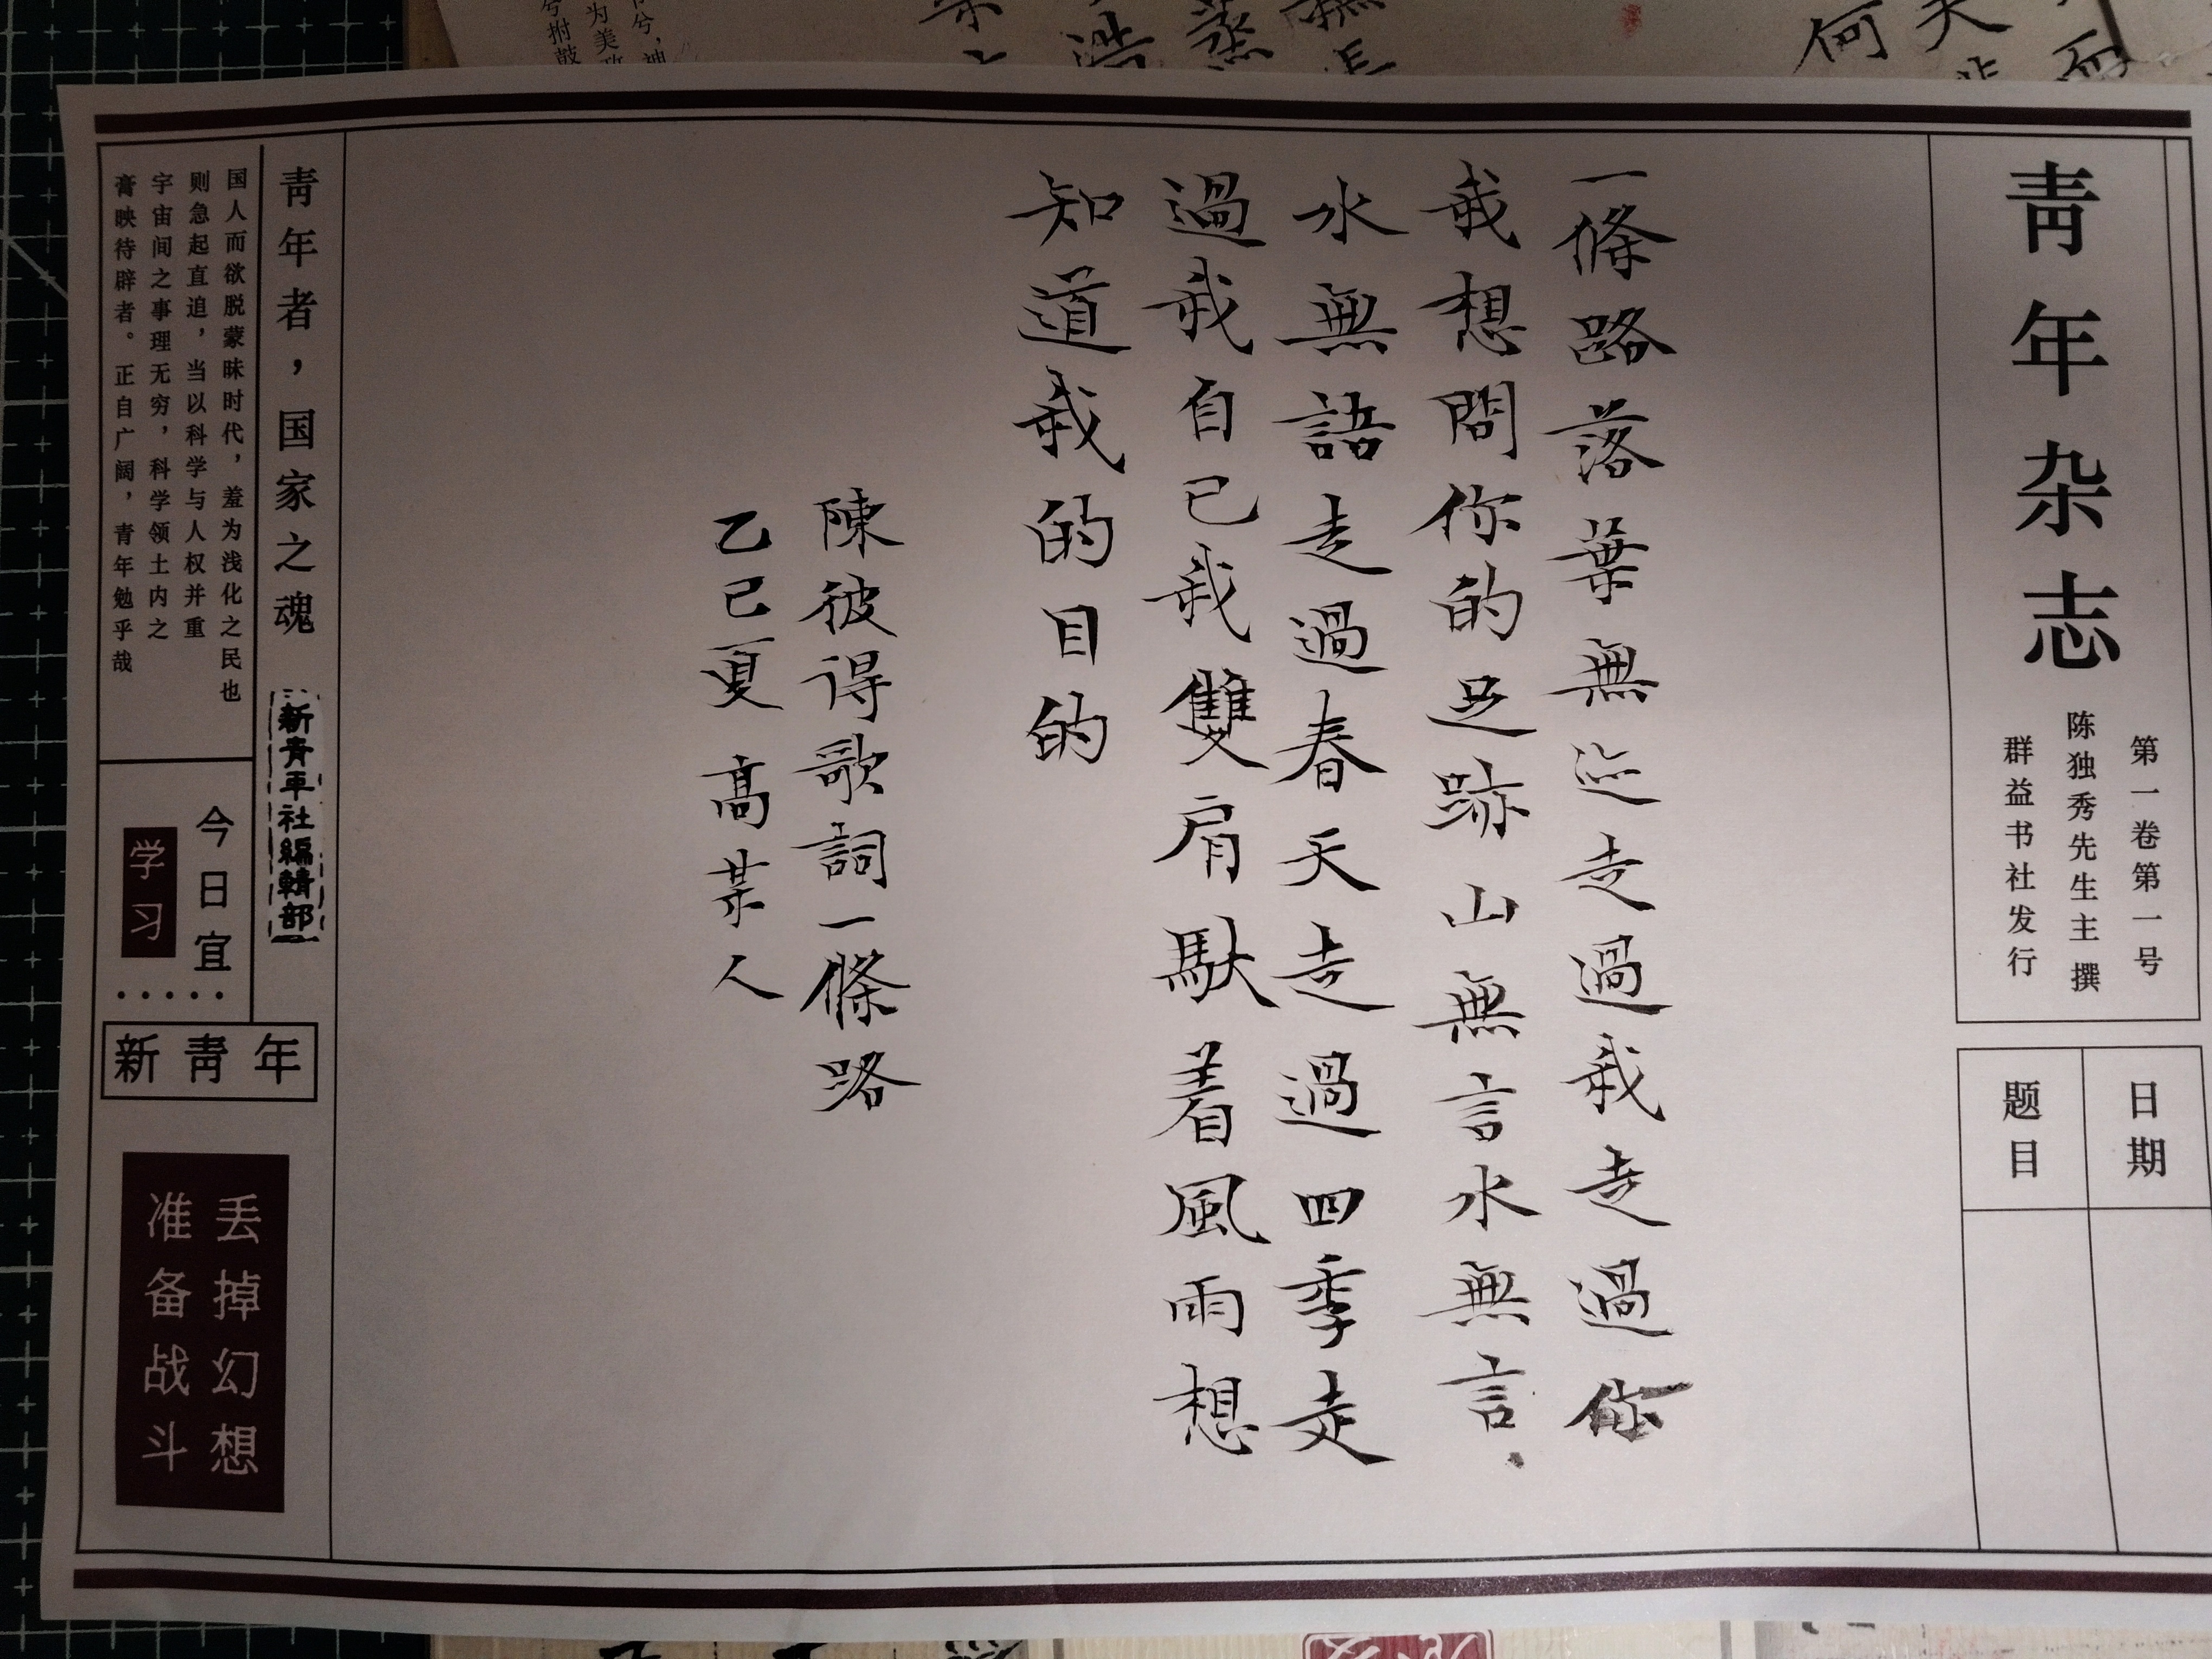 青年杂志
第一卷第一号
陈独秀先生主撰
群益书社发行
日期
题目
一條路落葉無迹走過我走過你
我想問你的足跡山無言水無言
水無語走過春天走過四季走
過我自己我雙肩馱着風雨想
知道我的目的
陳彼得歌詞一條路
乙巳夏高某人
青年者，国家之魂
新青年社編輯部
国人而欲脱蒙昧时代，羞为浅化之民也
则急起直追，当以科学与人权并重
宇宙间之事理无穷，科学领土内之
膏映待辟者。正自广阔，青年勉乎哉
今日宜
学习
新青年
丢掉幻想
准备战斗
何
浩
蒸